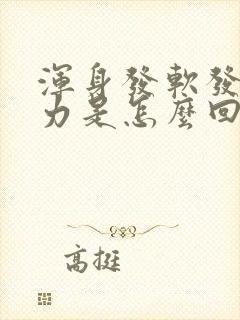 渾身發軟發
力是怎麼回
高挺